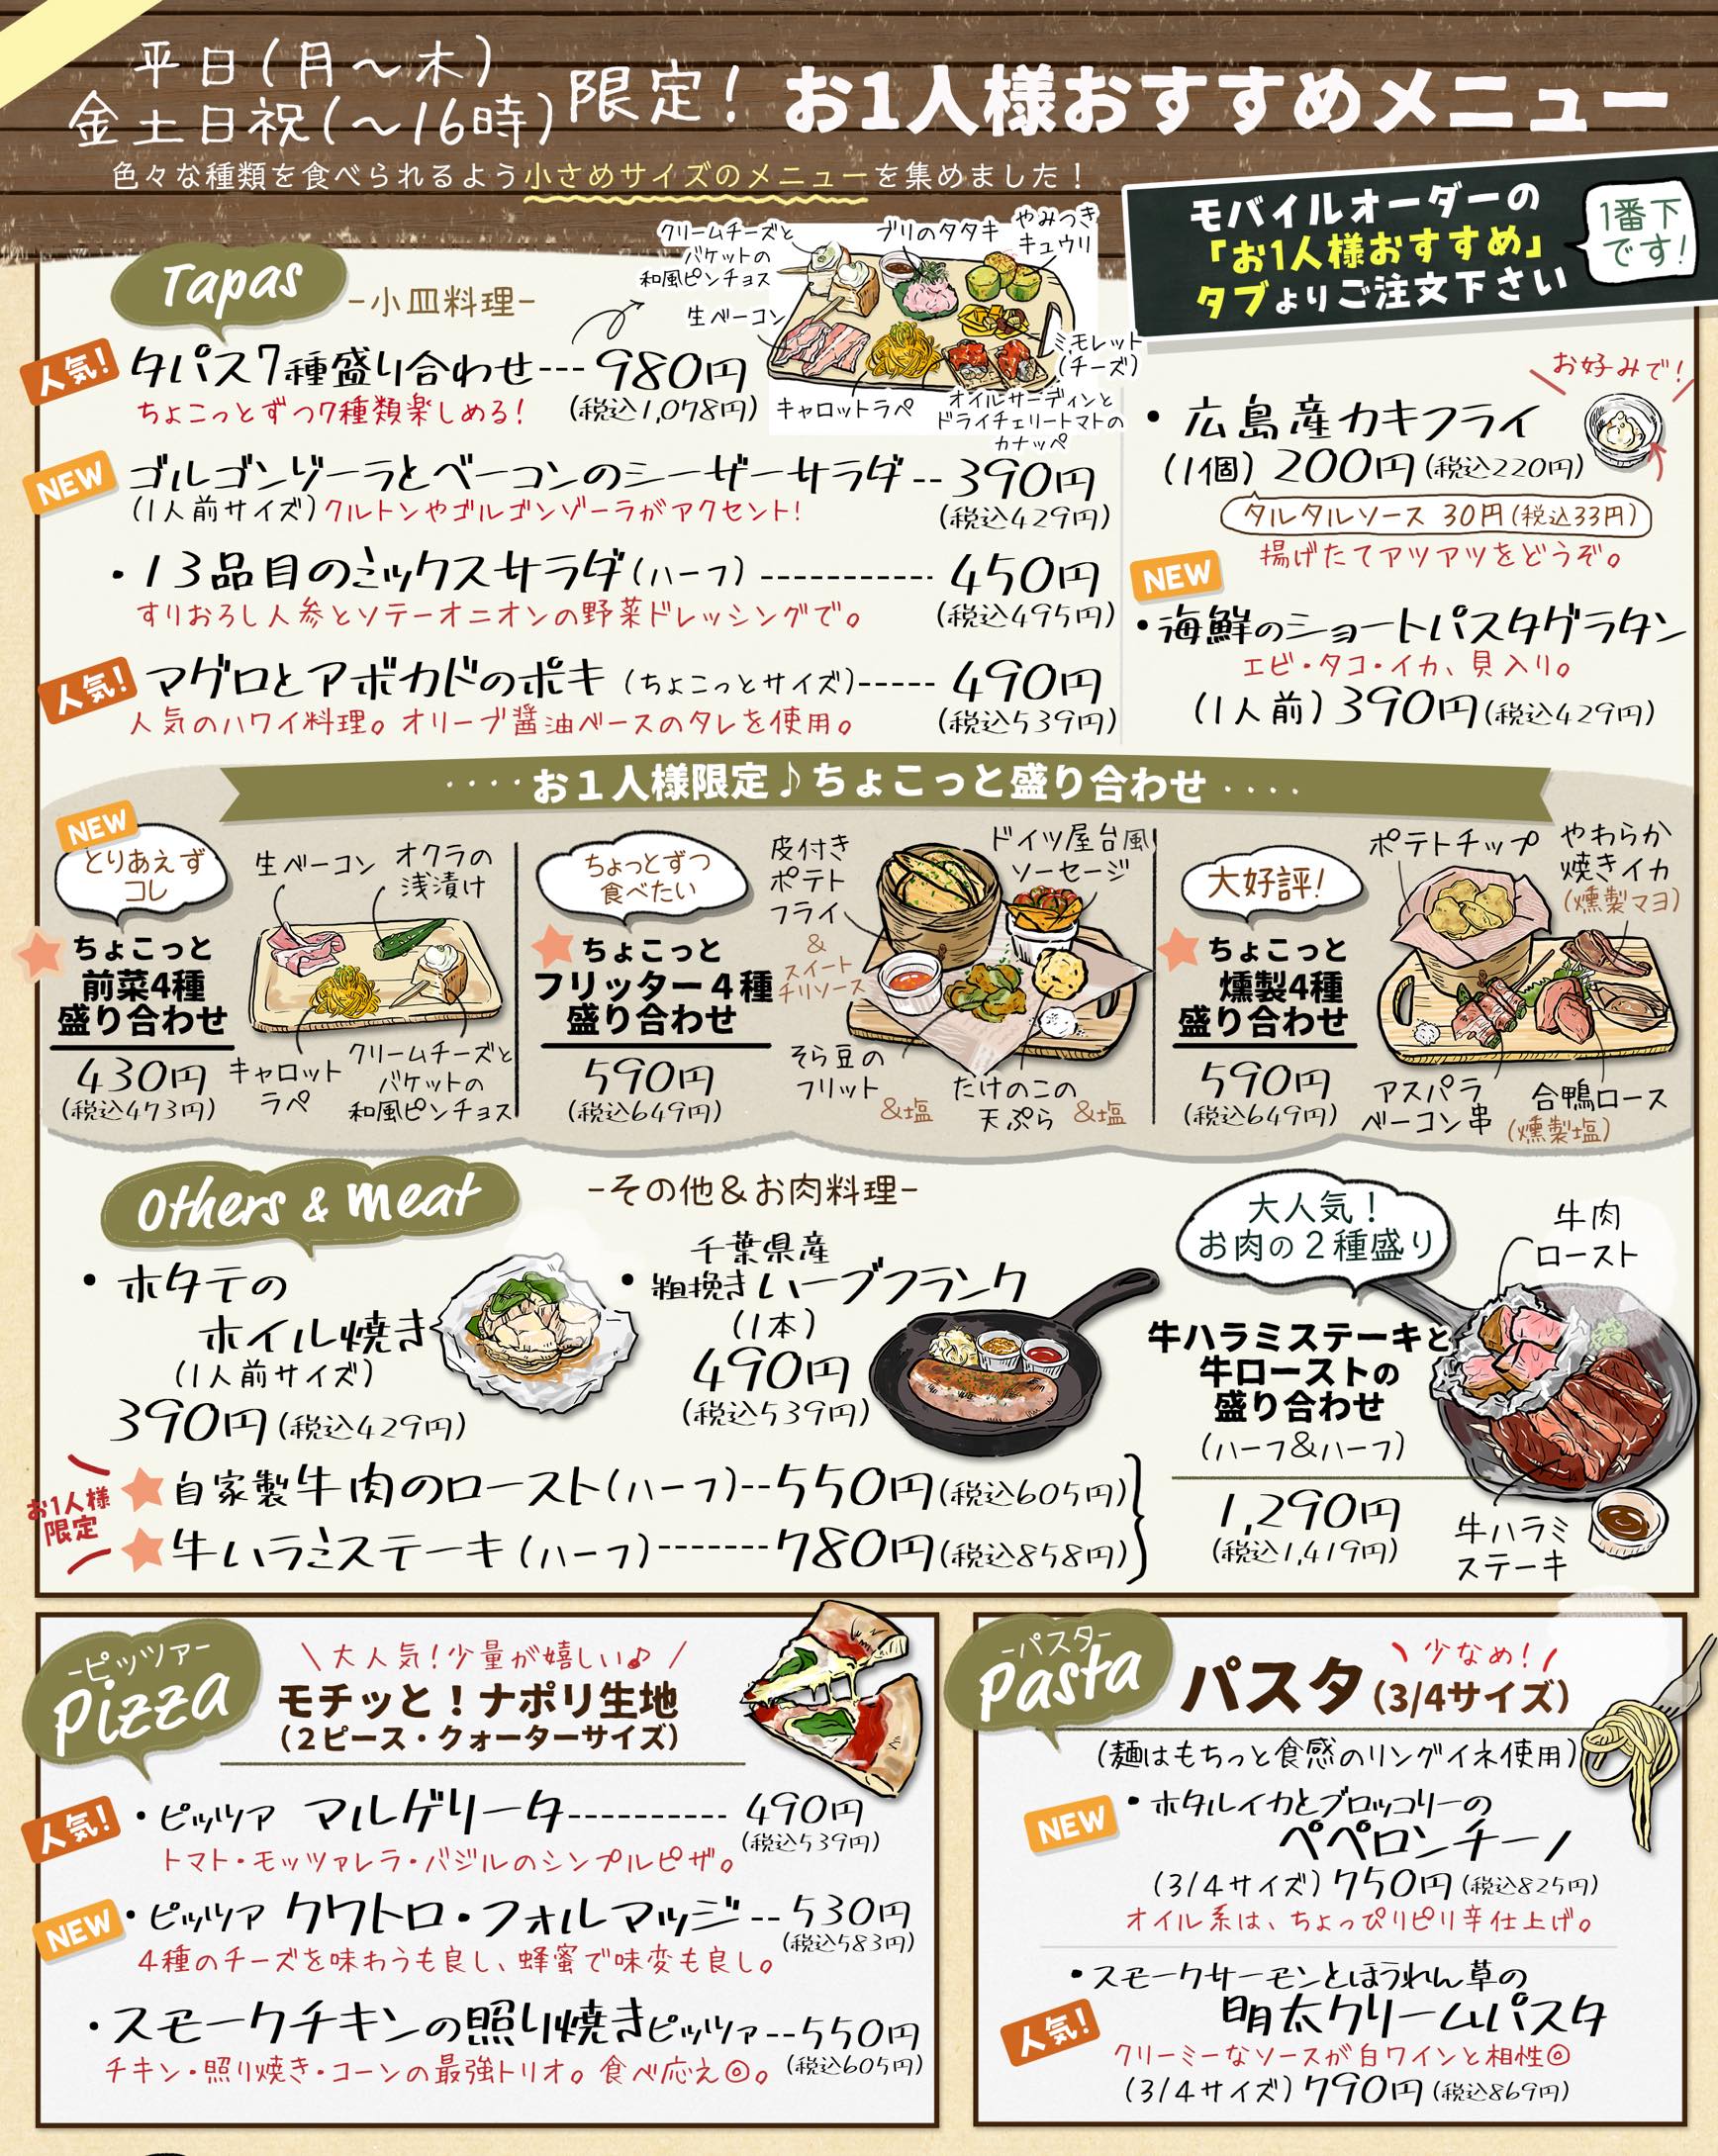 平日(月〜木)
金土日祝(〜16時)限定! お1人様おすすめメニュー
色々な種類を食べられるよう小さめサイズのメニューを集めました!
モバイルオーダーの
「お1人様おすすめ」
タブよりご注文下さい
1番下
です!
Tapas
-小皿料理-
クリームチーズと
バケットの
和風ピンチョス
ブリのタタキ
やみつき
キュウリ
生ベーコン
ミモレット
(チーズ)
キャロットラペ
オイルサーディンと
ドライチェリートマトの
カナッペ
人気!
タパス7種盛り合わせ---980円
ちょこっとずつ7種類楽しめる!
(税込1,078円)
NEW
ゴルゴンゾーラとベーコンのシーザーサラダ--390円
(1人前サイズ)クルトンやゴルゴンゾーラがアクセント!
(税込429円)
・13品目のミックスサラダ(ハーフ)-----------450円
すりおろし人参とソテーオニオンの野菜ドレッシングで。
(税込495円)
人気!
マグロとアボカドのポキ(ちょこっとサイズ)-----490円
人気のハワイ料理。オリーブ醤油ベースのタレを使用。
(税込539円)
お好みで!
・広島産カキフライ
(1個)200円(税込220円)
タルタルソース 30円(税込33円)
揚げたてアツアツをどうぞ。
NEW
・海鮮のショートパスタグラタン
エビ・タコ・イカ、貝入り。
(1人前)390円(税込429円)
‥‥お1人様限定♪ちょこっと盛り合わせ‥‥
NEW
とりあえず
コレ
ちょこっと
前菜4種
盛り合わせ
430円
(税込473円)
生ベーコン
オクラの
浅漬け
キャロット
ラペ
クリームチーズと
バケットの
和風ピンチョス
ちょっとずつ
食べたい
ちょこっと
フリッター4種
盛り合わせ
590円
(税込649円)
皮付き
ポテト
フライ
&
スイート
チリソース
ドイツ屋台風
ソーセージ
そら豆の
フリット
&塩
たけのこの
天ぷら
&塩
大好評!
ちょこっと
燻製4種
盛り合わせ
590円
(税込649円)
ポテトチップ
やわらか
焼きイカ
(燻製マヨ)
アスパラ
ベーコン串
合鴨ロース
(燻製塩)
Others & meat
-その他&お肉料理-
・ホタテの
ホイル焼き
(1人前サイズ)
390円(税込429円)
・千葉県産
粗挽きハーブフランク
(1本)
490円
(税込539円)
お1人様
限定
自家製牛肉のロースト(ハーフ)--550円(税込605円)
牛ハラミステーキ(ハーフ)-------780円(税込858円)
大人気!
お肉の2種盛り
牛肉
ロースト
牛ハラミステーキと
牛ローストの
盛り合わせ
(ハーフ&ハーフ)
1,290円
(税込1,419円)
牛ハラミ
ステーキ
-ピッツァ-
Pizza
大人気!少量が嬉しい♪
モチッと!ナポリ生地
(2ピース・クォーターサイズ)
人気!
・ピッツァ マルゲリータ----------490円
(税込539円)
トマト・モッツァレラ・バジルのシンプルピザ。
NEW
・ピッツァ クワトロ・フォルマッジ--530円
(税込583円)
4種のチーズを味わうも良し、蜂蜜で味変も良し。
・スモークチキンの照り焼きピッツァ--550円
チキン・照り焼き・コーンの最強トリオ。食べ応え◎。
(税込605円)
-パスタ-
Pasta
少なめ!
パスタ(3/4サイズ)
(麺はもちっと食感のリングイネ使用)
NEW
・ホタルイカとブロッコリーの
ペペロンチーノ
(3/4サイズ)750円(税込825円)
オイル系は、ちょっぴりピリ辛仕上げ。
・スモークサーモンとほうれん草の
人気!
明太クリームパスタ
クリーミーなソースが白ワインと相性◎
(3/4サイズ)790円(税込869円)